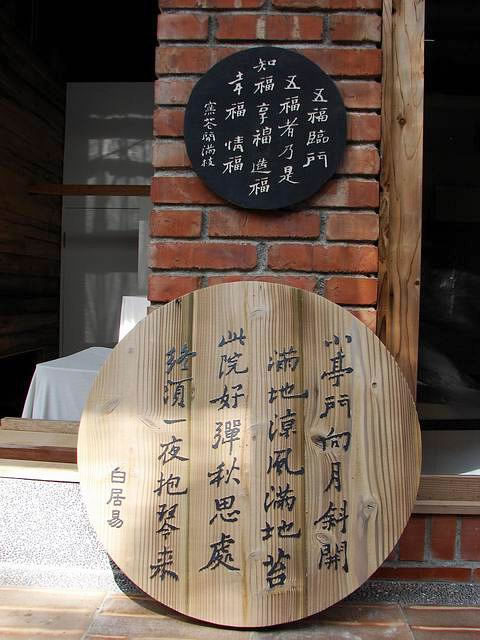 五福臨門
五福者乃是
知福享福造福
幸福 惜福
窯花開滿枝
小亭門向月斜開
滿地涼風滿地苔
此院好彈秋思處
終須一夜抱琴来
白居易